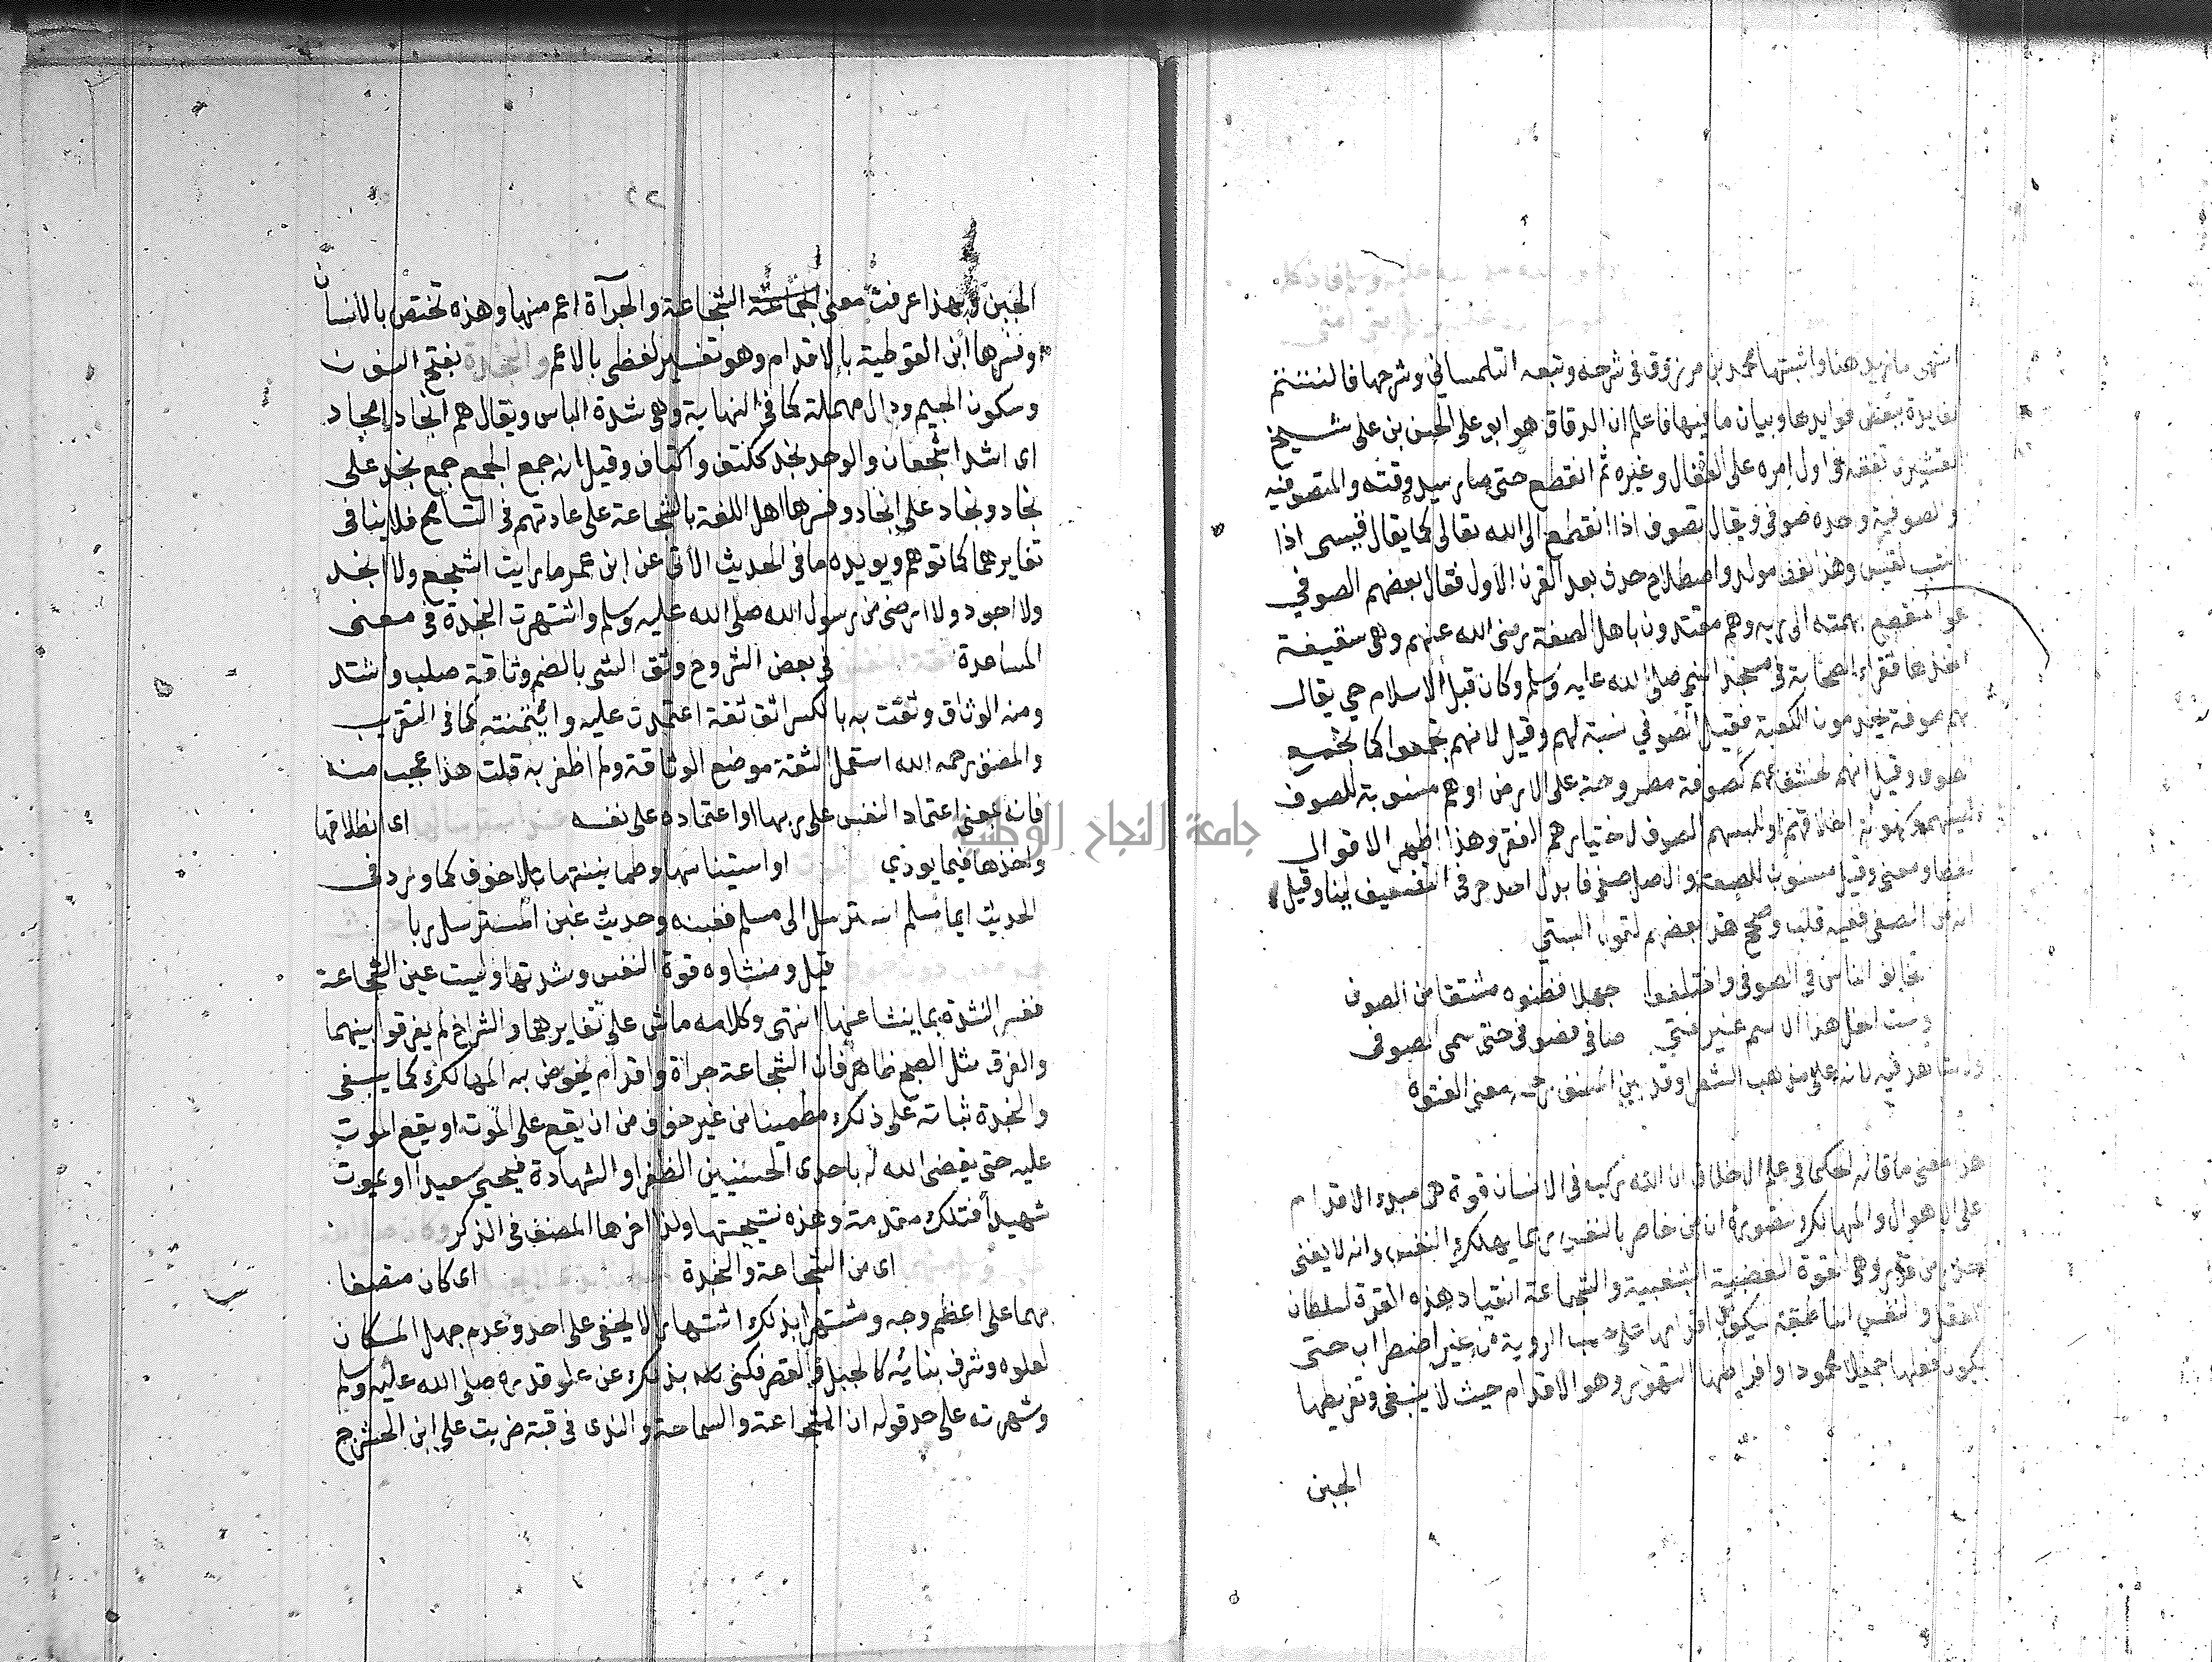 انتهى ما نريد هنا واثبتها محمد بن مرزوق فى شرحه وتبعه التلمساني وشرحها فالنغتنم
لفايدة ببعض فوايدها وبيان ما فيها فاعلم ان الدقاق هو ابو على الحسن بن على شيخ
القشيرى تفقه فى اول امره على القفال وغيره ثم انقطع حتى صار سيد وقته والمتصوفيه
والصوفية وحده صوفى ويقال تصوف اذا انقطع الى الله تعالى كما يقال قيسى اذا
انتسب لقيس وهذا لفظ مولد واصطلاح حدث بعد القرن الاول فقال بعضهم الصوفي
هو المنقطع بهمته الى ربه وهم مقتدون باهل الصفة رضى الله عنهم وهى سقيفة
اتخذها فقراء الصحابة فى مسجد النبى صلى الله عليه وسلم وكان قبل الاسلام حي يقال
لهم صوفة يخدمون الكعبة فقيل الصوفي نسبة لهم وقيل لانهم تجمعوا كما تجتمع
الصوف وقيل انهم لخشوعهم كصوفة مطروحة على الارض او هم منسوبة للصوف
للينهم وسهولة اخلاقهم او للبسهم الصوف لاختيارهم الفقر وهذا اظهر الاقوال
لفظا ومعنى وقيل منسوب للصفة والاصل صفى فابدل احد حرفى التضعيف لينا وقيل
انه من الصفى ففيه قلب وصحح هذا بعضهم لقول البستي
تخالف الناس فى الصوفى واختلفوا جهلا فظنوه مشتقا من الصوف
ولست انحل هذا الاسم غير فتى صافى فصوفى حتى سمى الصوفى
ولا شاهد فيه لانه على مذهب الشعراء وقد بين المصنف رحمه معنى الفتوة
هذا معنى ما قاله الحكما فى علم الاخلاق ان الله ركب فى الانسان قوة هى مبدء الاقدام
على الاهوال والمهالك وتصوره ان من خاطر بالنفس ربما يهلك النفس وانه لا يغنى
حذر من قدر وهى القوة الغضبية الشغبية والشجاعة انقياد هذه القوة لسلطان
العقل والنفس الناطقة ليكون اقدامها على حسب الروية من غير اضطراب حتى
يكون فعلها جميلا محمودا وافراطها التهور وهو الاقدام حيث لا ينبغى وتفريطها
الجبن
الجبن فبهذا عرفت معنى الشجاعة والجرآة اعم منها وهذه تختص بالانسان
وفسرها ابن القوطية بالاقدام وهو تفسير لفظى بالاعم والنجدة بفتح النون
وسكون الجيم ودال مهملة كما فى النهاية وهى شدة الباس ويقال هم انجاد امجاد
اى اشدا شجعان والوحد نجد ككتف واكتاف وقيل انه جمع الجمع جمع نجد على
نجاد ونجاد على انجاد وفسرها اهل اللغة بالشجاعة على عادتهم فى التسامح فلا ينافى
تغايرهما كما توهم ويويده ما فى الحديث الآتى عن ابن عمر ما رايت اشجع ولا انجد
ولا اجود ولا ارضى من رسول الله صلى الله عليه وسلم واشتهرت النجدة فى معنى
المساعدة فى بعض الشروح وثق الشى بالضم وثاقة صلب واشتد
ومنه الوثاق وثقت به بالكسر اثق ثقة اعتمدت عليه وائتمنته كما فى التقريب
والمصنف رحمه الله استعمل الثقة موضع الوثاقة ولم اظفر به قلت هذا عجيب منه
فانه بمعنى اعتماد النفس على ربها او اعتماده على نفسه اى انطلاقها
واخذها فيما يوذي او استيناسها وطمانينتها بلا خوف كما ورد فى
الحديث ايما مسلم استرسل الى مسلم فغبنه وحديث غبن المسترسل ربا
قيل ومنشاوه قوة النفس وشدتها وليست عين الشجاعة
ففسر الشدة بما ينشا عنها انتهى وكلامه ماش على تغايرهما والشراح لم يفرقوا بينهما
والفرق مثل الصبح ظاهر فان الشجاعة جراة واقدام يخوض به المهالك كما ينبغى
والنجدة ثباته على ذلك مطمينا من غير خوف من ان يقع على الموت او يقع الموت
عليه حتى يقضى الله له باحدى الحسنيين الظفر او الشهادة فيحيى سعيدا او يموت
شهيدا فتلك مقدمة وهذه نتيجتها ولذا اخرها المصنف فى الذكر
اى من الشجاعة والنجدة اى كان متصفا
بهما على اعظم وجه ومشتهرا بذلك اشتهارا لا يخفى على احد وعدم جهل المكان
لعلوه وشرف بنائه كالجبل والقصر فكنى بذلك عن علو قدره صلى الله عليه وسلم
وشهرته على حد قوله ان الشجاعة والسماحة والندى فى قبة ضربت على ابن الحشرج
جامعة النجاح الوطنية